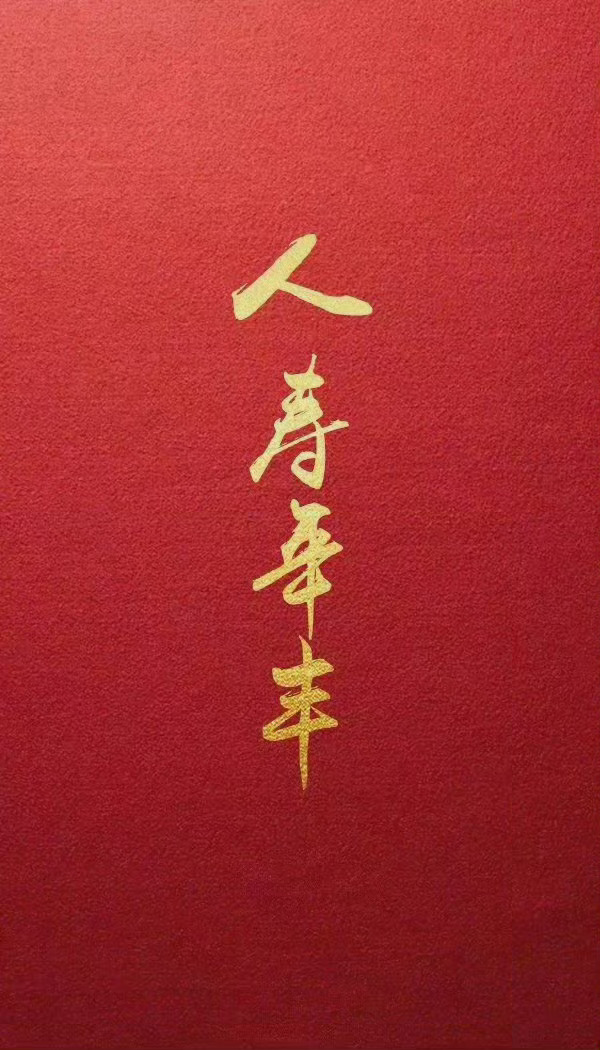 人寿年丰